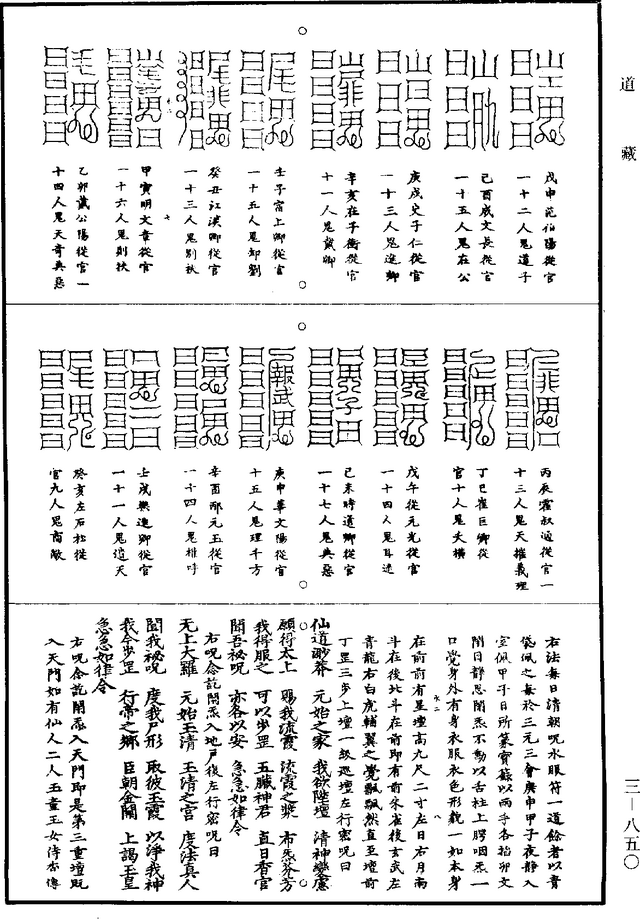 道藏
戊申范伯陽從官
一十二人鬼遠子
己酉成文長從官
一十五人鬼在公
庚戌史子仁從官
一十三人鬼遠卿
辛亥在子衡從官
十一人鬼歲卿
壬子宵上卿從官
一十五人鬼却劉
癸丑江漢卿從官
一十三人鬼別狄
甲寅明文章從官
一十六人鬼則狄
乙卯戴公陽從官一
十四人鬼天奇典惡
丙辰霍叔逼從官一
十三人鬼天摧義理
丁巳崔巨卿從
官十人鬼大橫
戊午從元光從官
一十四人鬼耳述
己未時道卿從官
一十七人鬼典惡
庚申華文陽從官
十五人鬼理千方
辛酉邴元玉從官
一十四人鬼排呼
壬戌樂進卿從官
一十一人鬼遑天
癸亥左石松從
官九人鬼高敵
右法每日清朝呪水服符一道餘者以青
袋佩之每於三元三會庚申甲子夜靜入
室佩甲子日所篆寶籙以兩手各掐卯文
閉目靜思閉炁不動以舌柱上腭咽炁一
口覺身外有身衣服衣色形貌一如本身
在前前有星壇高九尺二寸左日右月南
斗在後北斗在前即有前朱雀後玄武左
青龍右白虎輔翼之覺飄飄然直至壇前
丁罡三步上壇一級巡壇左行密呪曰
仙道渺莽 元始之家 我欲陞壇 清神變慮
願得太上 賜我流霞 流霞之漿 布炁芬方
我得服之 可以步罡 五臟神君 直日香官
聞吾祕呪 亦各以安 急急如律令
右呪念訖閉炁入地戶後左行密呪曰
无上大羅 元始玉清 玉清之宮 度法真人
聞我祕呪 度我尸形 取彼玉霞 以淨我神
我今步罡 行帝之鄉 巨朝金闕 上謁玉皇
急急如律令
右呪念訖閉炁入天門即是第三重壇既
入天門如有仙人二人五童玉女侍香傳
三—八五〇